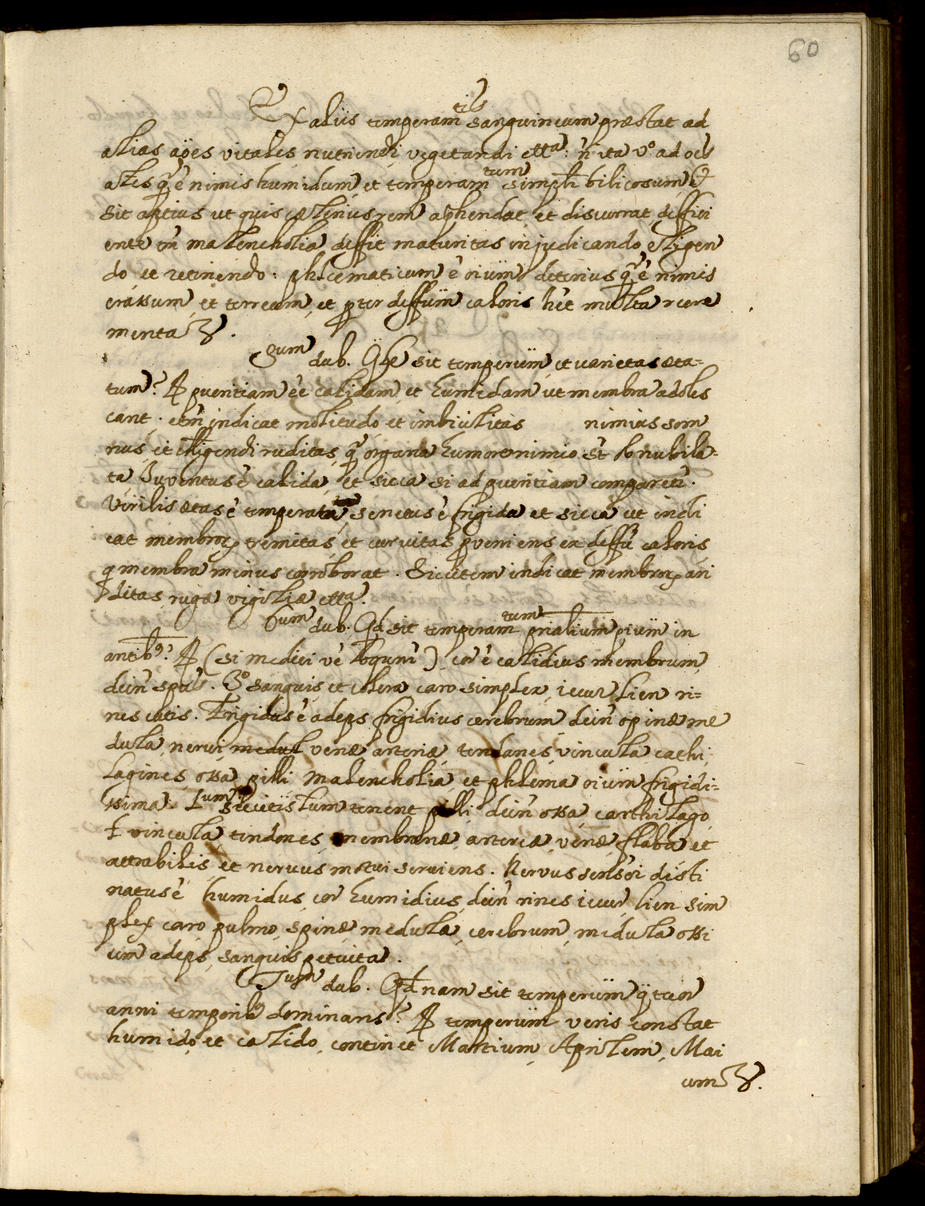 60
Ex aliis temperamtis sanguineum præstat ad
alias aões vitales nutriendi vegetandi etta: ñ ita vo ad
ales q̃ ẽ nimis humidum, et temperamtum simplr biliosum ẽ
sit aptius ut quis celerius rem aphendat, et discurrat deffici
ente tñ malencholia deffit maturitas in judicando eligen
do et retinendo. phlegmaticum ẽ oiũm deterius q̃ ẽ nimis
crassum, et terreum, et ꝓpter deffũm caloris hẽt multa
menta
5um dub. Qle sit temperũm et varietas æta-
tum? R pueritiam ẽe calidam et humidam ut membra adoles
cant. etñ indicat molitudo et imbicilitas nimius som
nus et ruditas, q̃ organa humore nimio sẽ obnubila-
ta Juventus ẽ calida, et sicca si ad pueritiam comparetr.
Virilis ætas ẽ temperata senectus ẽ frigida et sicca ut indi
cat membroꝝ tremitas, et curvitas ꝓveniens ex deffũ caloris
q membra minus corroborat. Siccitem indicat membroꝝ ari
ditas, rugæ vigiliæ etta.
6um dub. Qd sit temperamtum prialium pium in
antibq? R (si medici ve loqunr) cor ẽ calidius membrum,
dein spũs. 3o sanguis, et colera caro simplex, iecur lien re-
nes cutis. Frigidus ẽ adeps frigidius cerebrum dein spinæ me
dula nervi medul venæ arteriæ tendones, vincula carthi
lagines ossa pilli malencholia, et phlema oiũm frigidi-
ssima. Lum siccitis lum tenent pilli dein ossa, carthilago,
vincula tendones, membranæ, arteriæ, venæ flaba et
attrabilis et nervus motui serviens. Nervus sensoi desti
natus ẽ humidus, cor humidius, dein rines iecur, lien sim
plex caro, pulmo, spinæ medula, cerebrum, midula ossi
um adeps, sanguis petuita.
7um dub. Qdnam sit temperũm qtuor
anni temporibq dominans? R temperũm veris constat
humido, et calido, continet Martium, Aprilem, Mai
um